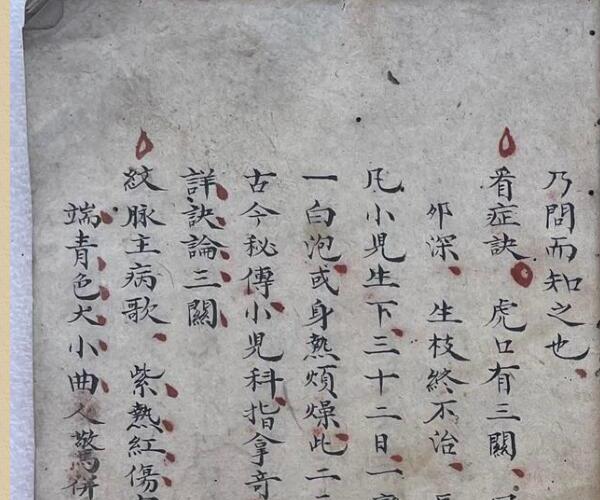 乃問而知之也
看症訣 虎口有三關
夘深 生枝終不治
凡小児生下三十二日一
一白泡或身熱煩燥此二
古今秘傳小児科指拿竒
詳訣論三關
紋脉主病歌 紫熱紅傷
端青色大小曲人驚併